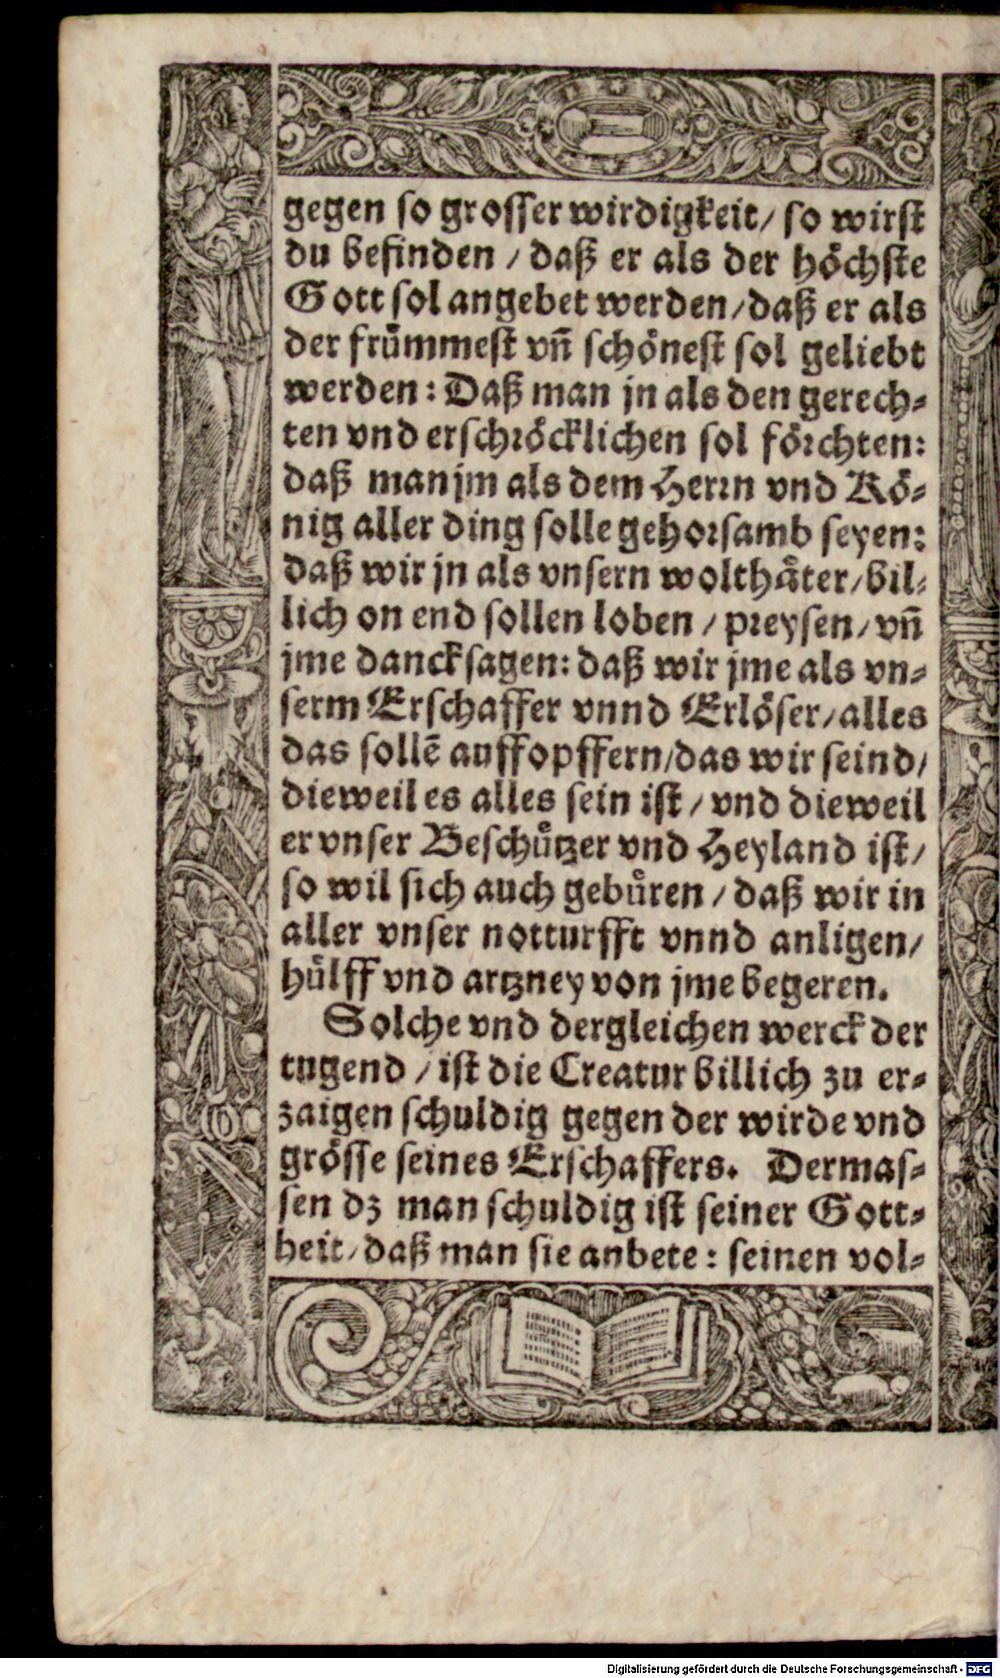 gegen so grosser wirdigkeit/ so wirst
du befinden / daß er als der hoͤchste
Gott sol angebet werden/daß er als
der fruͤmmest vn̄ schoͤnest sol geliebt
werden: Daß man jn als den gerech⸗
ten vnd erschroͤcklichen sol foͤrchten:
daß man jm als dem Herrn vnd Koͤ⸗
nig aller ding solle gehorsamb seyen:
daß wir jn als vnsern wolthaͤter/bil⸗
lich on end sollen loben / preysen/ vn̄
jme danck sagen: daß wir jme als vn⸗
serm Erschaffer vnnd Erloͤser/alles
das sollē auffopffern/das wir seind/
dieweil es alles sein ist / vnd dieweil
er vnser Beschuͤtzer vnd Heyland ist/
so wil sich auch gebuͤren / daß wir in
aller vnser notturfft vnnd anligen/
huͤlff vnd artzney von jme begeren.
Solche vnd dergleichen werck der
tugend / ist die Creatur billich zu er⸗
zaigen schuldig gegen der wirde vnd
groͤsse seines Erschaffers. Dermas⸗
sen dz man schuldig ist seiner Gott⸗
heit/ daß man sie anbete: seinen vol⸗
Digitalisierung gefördert durch die Deutsche Forschungsgemeinschaft - DFG